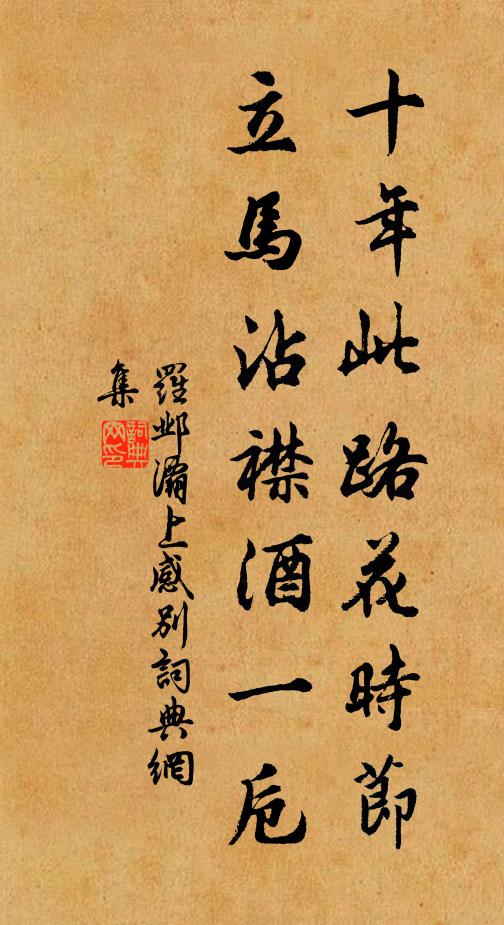 十年此路花時節
立馬沾襟酒一卮
羅鄴灞上感別詞典網
集
詞典網印